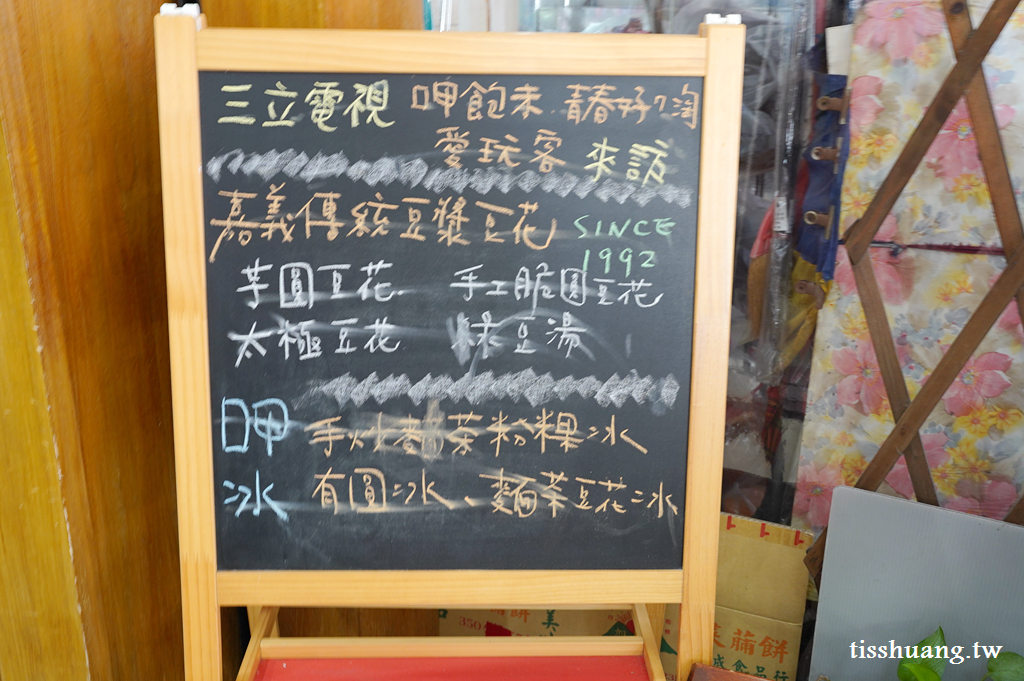 三立電視 呷飽未 青春好7淘
愛玩客 來訪
嘉義傳統豆漿豆花 SINCE
1992
芋圓豆花. 手工脆圓豆花
太極豆花 綠豆湯
呷 手炒麵茶粉粿冰
冰 有圓冰、麵茶豆花冰
餅 美
350
菜脯餅
盛食品行
tisshuang.tw